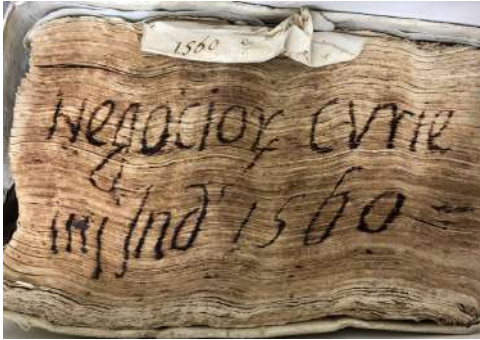 1560
Negocioꝝ Cvrie
iiij Ind' 1560